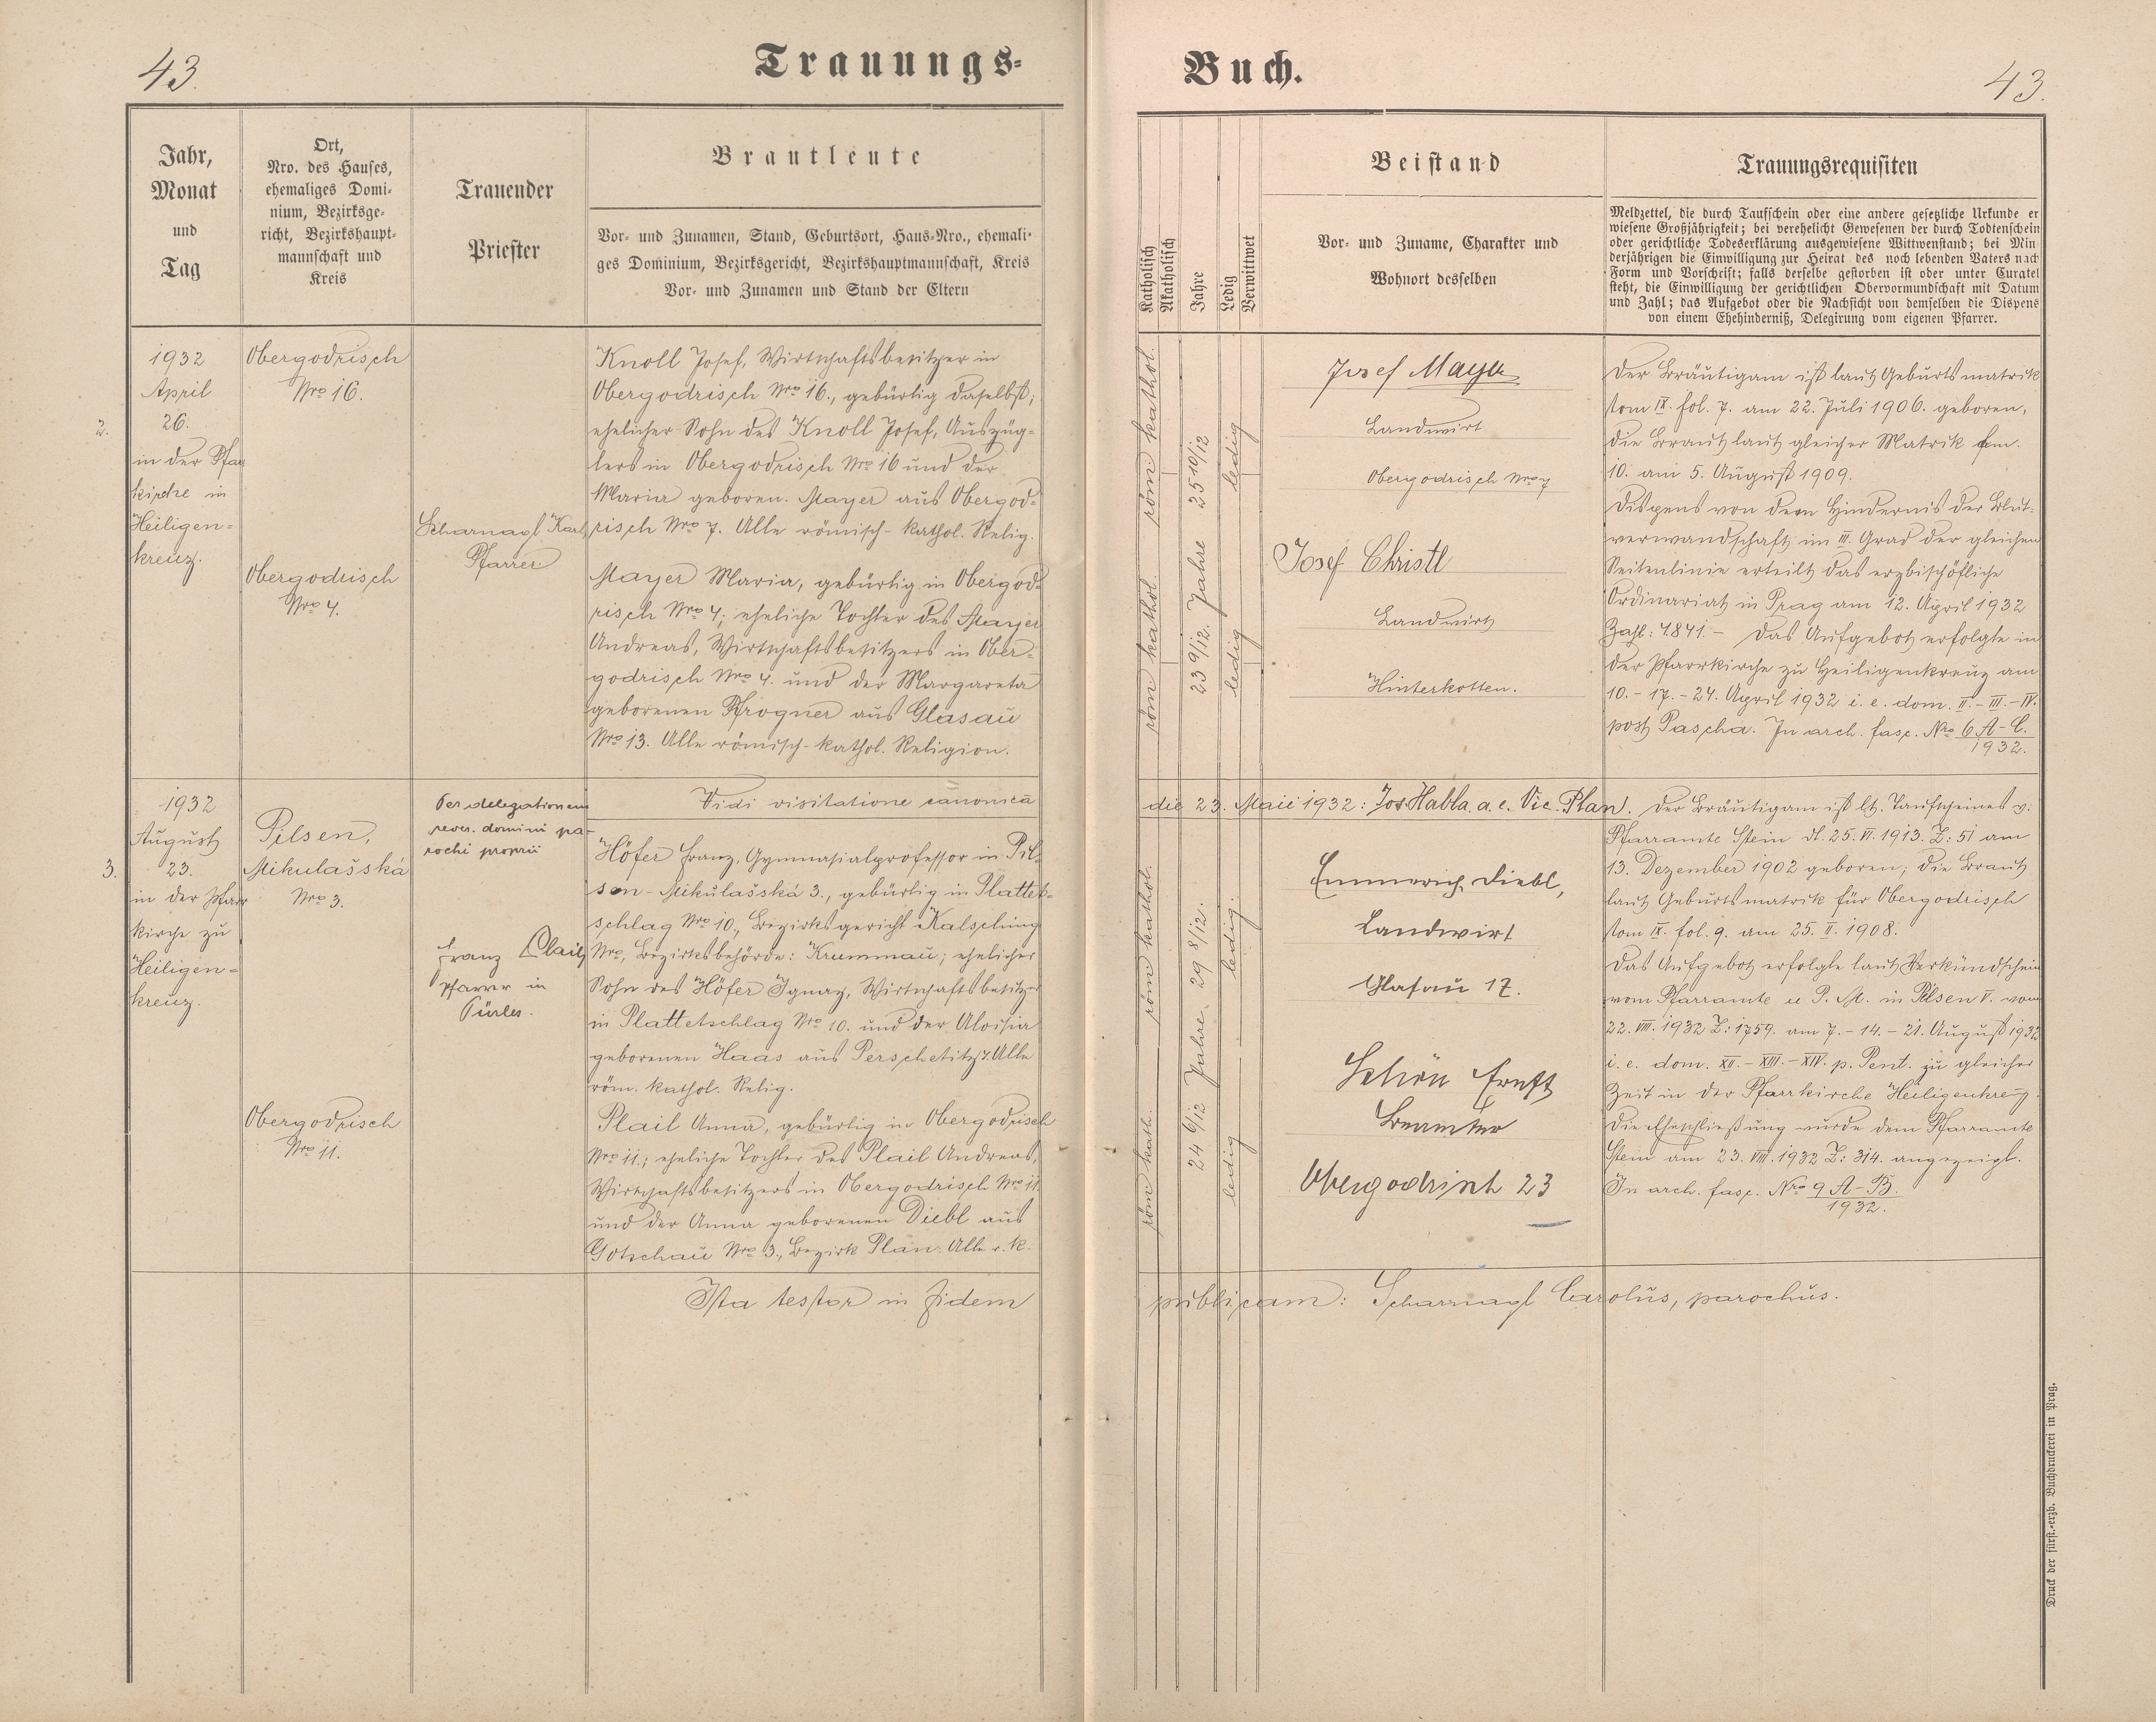 43.
Trauungs-
Buch.
43.
Jahr,
Monat
und
Tag
Ort,
Nro. des Hauses,
ehemaliges Domi-
nium, Bezirksge-
richt, Bezirkshaupt-
mannschaft und
Kreis
Trauender
Priester
Brautleute
Vor- und Zunamen, Stand, Geburtsort, Haus-Nro., ehemali-
ges Dominium, Bezirksgericht, Bezirkshauptmannschaft, Kreis
Vor- und Zunamen und Stand der Eltern
Katholisch
Akatholisch
Jahre
Ledig
Verwittwet
Beistand
Vor- und Zuname, Charakter und
Wohnort desselben
Trauungsrequisiten
Meldzettel, die durch Taufschein oder eine andere gesetzliche Urkunde er
wiesene Großjährigkeit; bei verehelicht Gewesenen der durch Todtenschein
oder gerichtliche Todeserklärung ausgewiesene Wittwenstand; bei Min
derjährigen die Einwilligung zur Heirat des noch lebenden Vaters nach
Form und Vorschrift; falls derselbe gestorben ist oder unter Curatel
steht, die Einwilligung der gerichtlichen Obervormundschaft mit Datum
und Zahl; das Aufgebot oder die Nachsicht von demselben die Dispens
von einem Ehehinderniß, Delegirung vom eigenen Pfarrer.
2.
1932
April
26.
in der Pfar
kirche in
Heiligen-
kreuz.
Obergodrisch
Nro 16.
Obergodrisch
Nro 4.
Scharnagl Karl,
Pfarrer
Knoll Josef, Wirtschaftsbesitzer in
Obergodrisch Nro 16., gebürtig daselbst;
ehelicher Sohn des Knoll Josef, Auszüg-
lers in Obergodrisch Nro 16 und der
Maria geboren. Mayer aus Obergod-
risch Nro 7. Alle römisch-kathol. Relig.
Mayer Maria, gebürtig in Obergod-
risch Nro 4; eheliche Tochter des Mayer
Andreas, Wirtschaftsbesitzers in Ober-
godrisch Nro 4. und der Margareta
geborenen Pfrogner aus Glasau
Nro 13. Alle römisch-kathol. Religion.
röm kathol.
röm kathol.
25 10/12
23 9/12. Jahre
ledig
ledig
Josef Mayer
Landwirt
Obergodrisch Nro 7
Josef Christl
Landwirt
Hinterkotten.
Der Bräutigam ist laut Geburtsmatrik
tom IX. fol. 7. am 22. Juli 1906. geboren,
die Braut laut gleicher Matrik fom.
10. am 5. August 1909.
Dispens von dem Hindernis der Blut-
verwandschaft im III. Grad der gleichen
Seitenlinie erteilt das erzbischöfliche
Ordinariat in Prag am 12. April 1932
Zahl: 4.841.- Das Aufgebot erfolgte in
der Pfarrkirche zu Heiligenkreuz am
10.-17.-24. April 1932 i. e. dom. II.-III.-IV.
post Pascha. In arch. fasc. Nro 6 A-C.
1932.
Vidi visitatione canonica
die 23. Maii 1932: Jos. Habla. a. e. Vic. Plan.
3.
1932
August
23.
in der Pfarr
kirche zu
Heiligen-
kreuz.
Pilsen,
Mikulašská
Nro 3.
Obergodrisch
Nro 11.
Per delegationem
rever. domini pa-
rochi proprii
Franz Plail,
Pfarrer in
Pürles.
Höfer Franz, Gymnasialprofessor in Pil-
sen - Mikulašská 3., gebürtig in Plattet-
schlag Nro 10., Bezirksgericht Kalsching
Nro, Bezirksbehörde: Krummau; ehelicher
Sohn des Höfer Ignaz, Wirtschaftsbesitzer
in Plattetschlag Nro 10. und der Aloisia
geborenen Haas aus Perschetitz 7. Alle
röm. kathol. Relig.
Plail Anna, gebürtig in Obergodrisch
Nro 11.; eheliche Tochter des Plail Andreas,
Wirtschaftsbesitzers in Obergodrisch Nro 11
und der Anna geborenen Diebl aus
Gotschau Nro 3., Bezirk Plan. Alle r. k.
röm kathol.
röm kath.
29 8/12.
24 6/12 Jahre
ledig.
ledig
Emmerich Diebl,
Landwirt
Glasau 17.
Schön Ernst
Beamter
Obergodrisch 23
Der Bräutigam ist lt. Taufscheines v.
Pfarramte Stein dt. 25. VI. 1913. Z: 51 am
13. Dezember 1902 geboren; die Braut
laut Geburtsmatrik für Obergodrisch
tom IX. fol. 9. am 25. II. 1908.
Das Aufgebot erfolgte laut Verkündschein
vom Pfarramte u P. M. in Pilsen V. vom
22. VIII. 1932 Z: 1759. am 7.-14.-21. August 1932
i. e. dom. XII.-XIII.-XIV. p. Pent. zu gleicher
Zeit in der Pfarrkirche Heiligenkreuz.
Die Eheschließung wurde dem Pfarramte
Stein am 23. VIII. 1932 Z: 314. angezeigt.
In arch. fasc. Nro 9 A-B.
1932.
Ista testor in fidem
publicam: Scharnagl Carolus, parochus.
Druck der fürst.-erzb. Buchdruckerei in Prag.